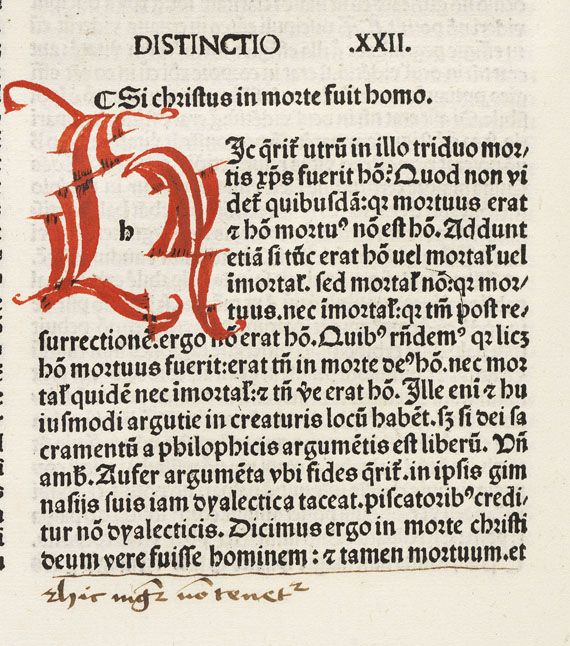 DISTINCTIO .XXII.
⁋Si christus in morte fuit homo.
h
Ic q̄rit᷑ utrū in illo triduo mor/
tis xp̄s fuerit hō?Quod non vi
det᷑ quibusdā:qꝛ mortuus erat
⁊ hō mortuꝰ nō est hō. Addunt
etiā si tūc erat hō uel mortal᷑ uel
īmortal᷑. sed mortal᷑ nō:qꝛ mor/
tuus.nec īmortal᷑:qꝛ tm̄ post re/
surrectione.ergo nō erat hō.Quibꝰ rn̄demꝰ qꝛ licꝫ
hō mortuus fuerit:erat tn̄ in morte deꝰ hō.nec mor
tal᷑ quidē nec īmortal᷑:⁊ tn̄ v̄e erat hō. Ille enī ⁊ hu
iusmodi argutie in creaturis locū habēt.sꝫ si dei sa
cramentū a philophicis argumētis est liberū. Vn̄
amb̄. Aufer argumēta vbi fides q̄rit᷑.in ipsis gim
nasijs suis iam dyalectica taceat.piscatoribꝰ credi/
tur nō dyalecticis. Dicimus ergo in morte christi
deum vere fuisse hominem : ⁊ tamen mortuum.et
hic mgr̄ nō tenet᷑